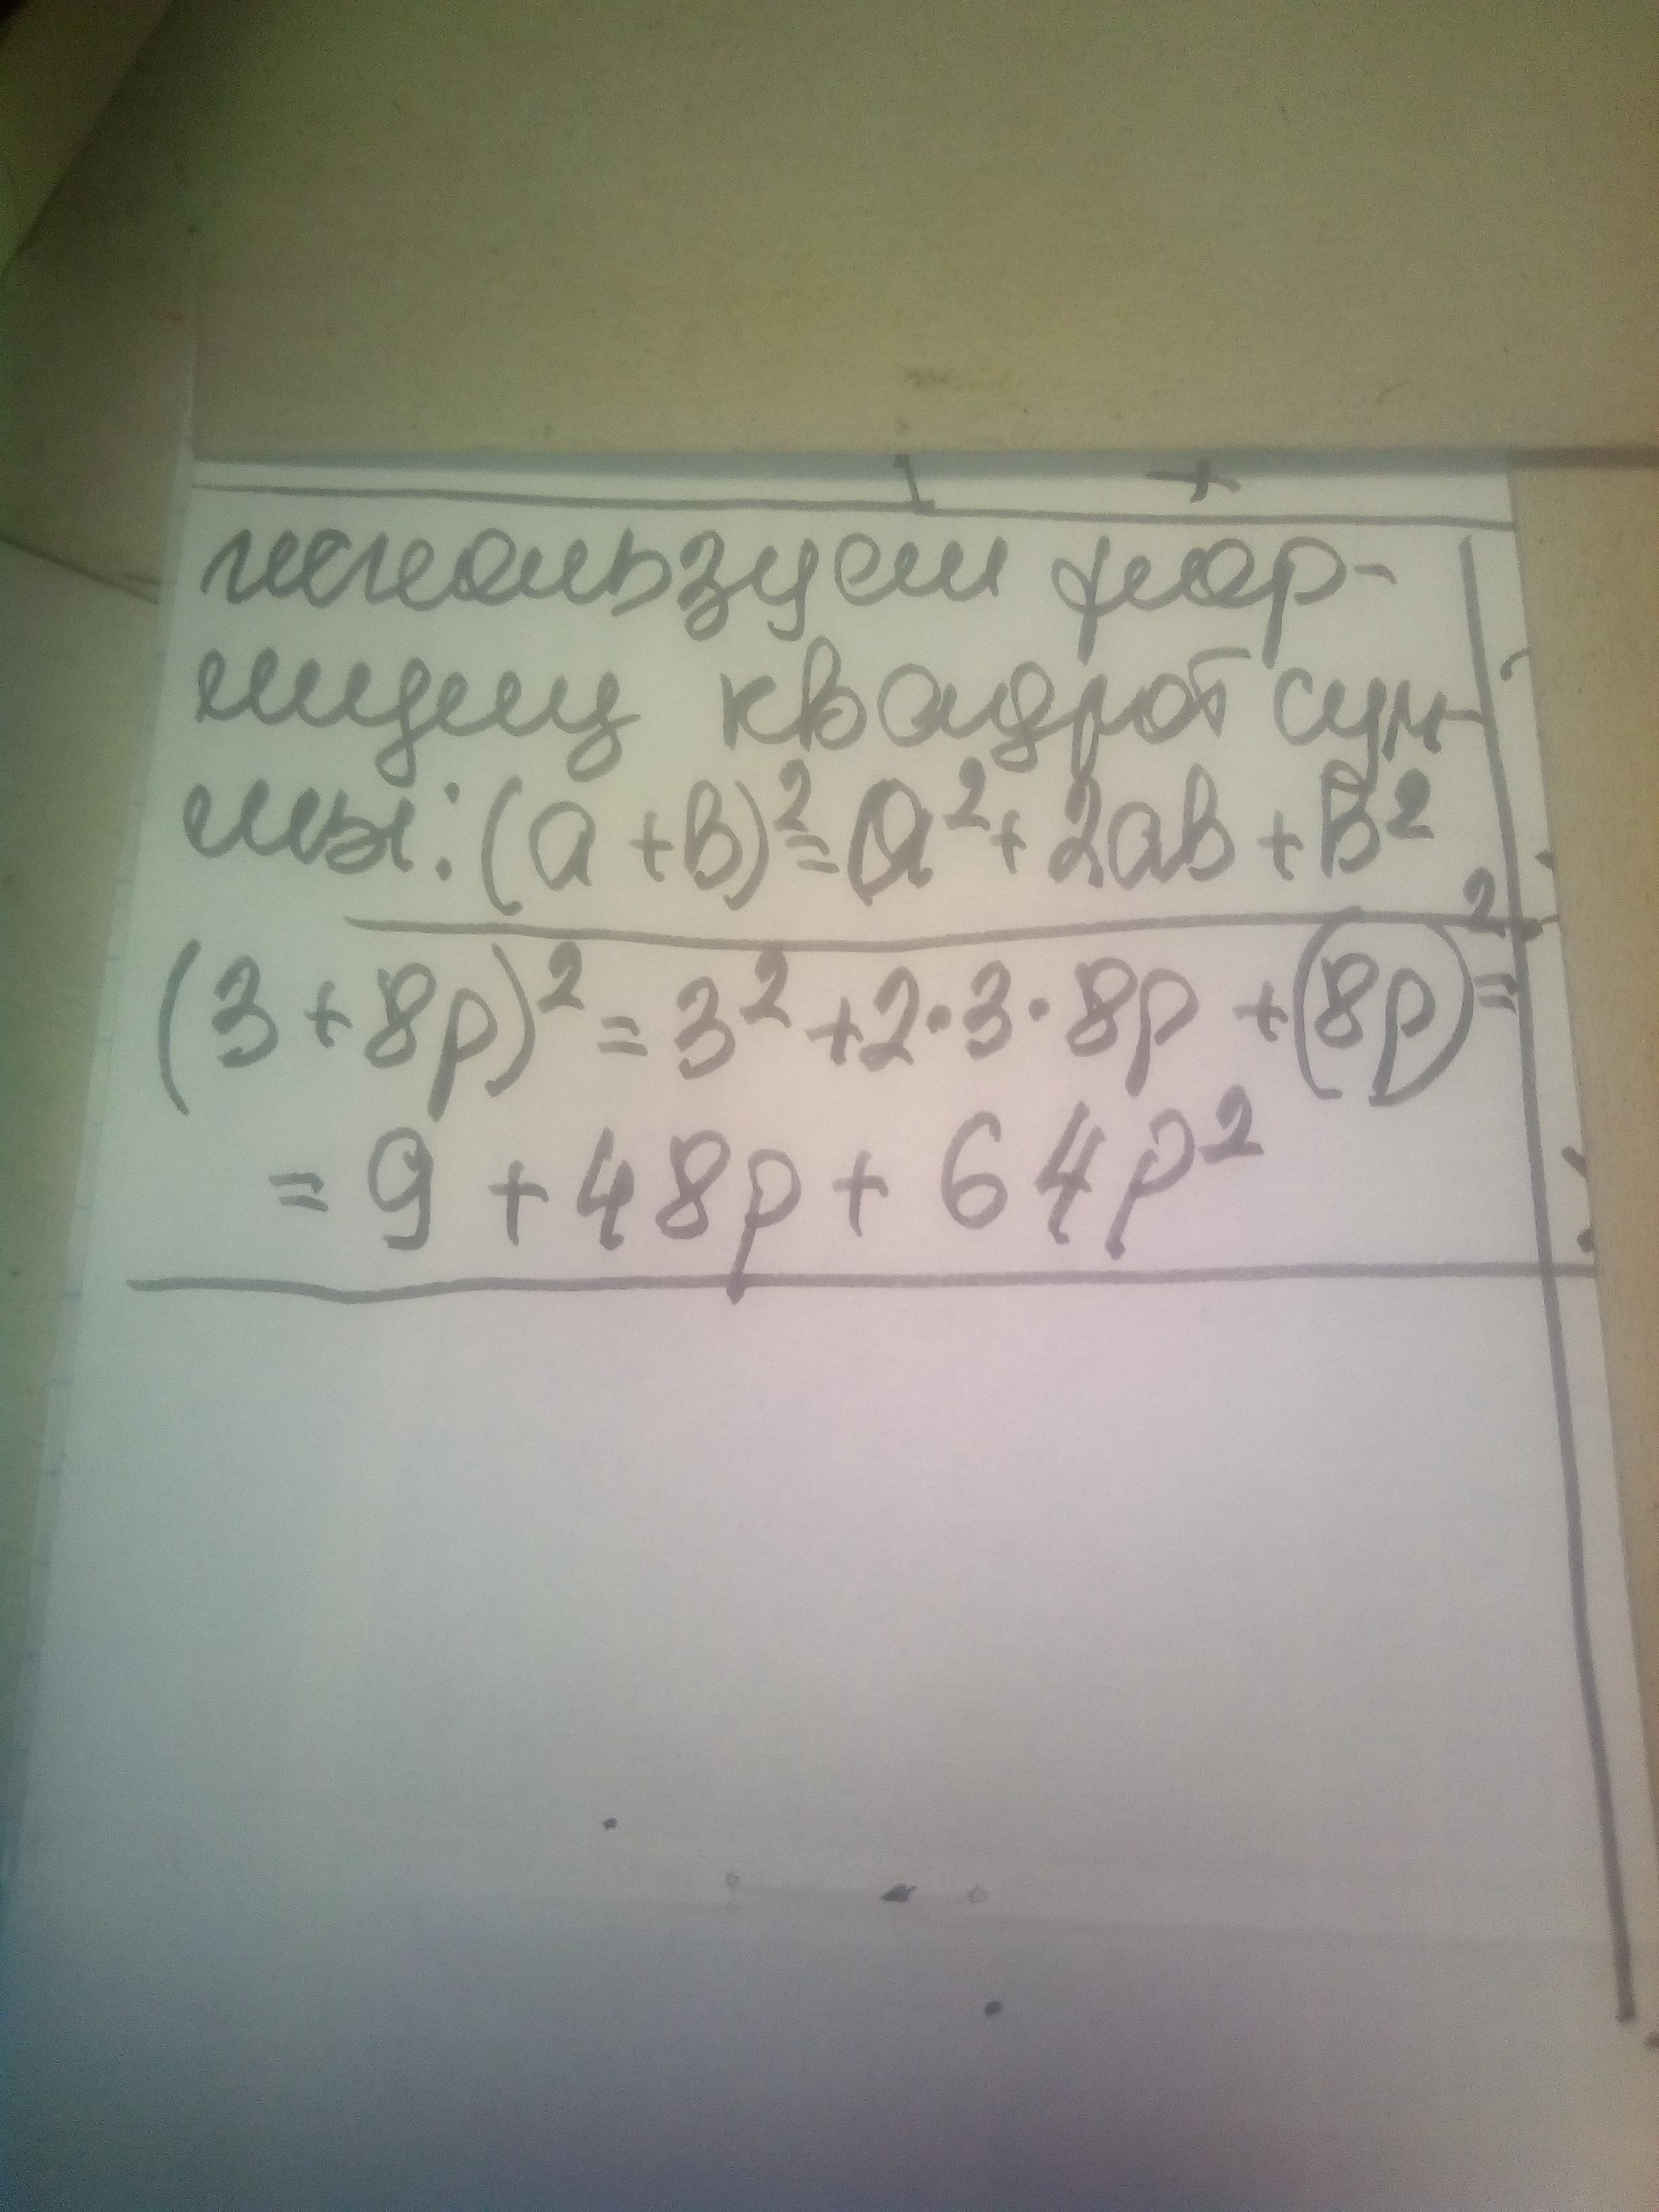 используем фор-
мулу квадрат сум-
мы: (a + b)² = a² + 2ab + b²
(3 + 8p)² = 3² + 2·3·8p + (8p)² =
= 9 + 48p + 64p²